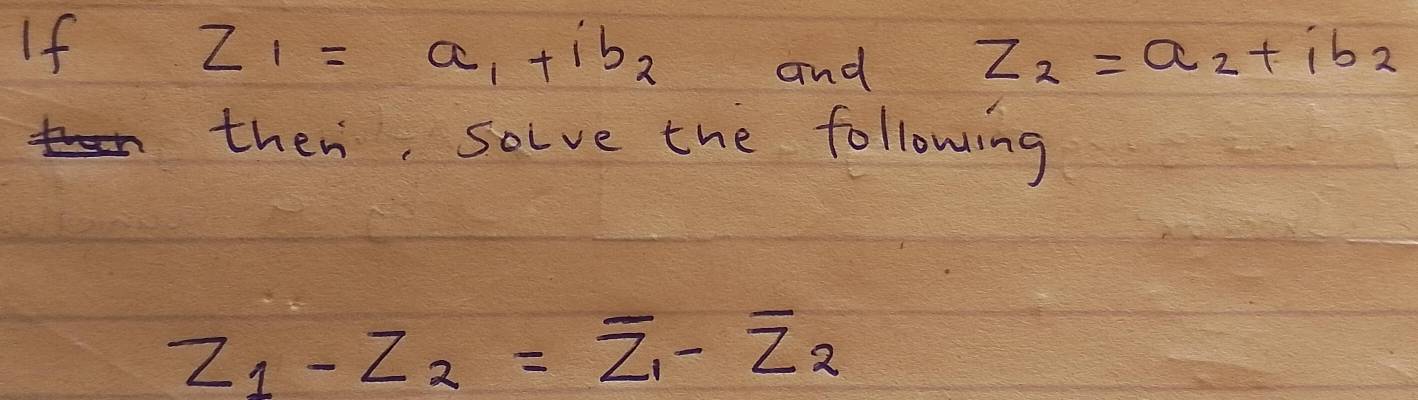 If Z1 = a1 + ib2 and Z2 = a2 + ib2
then, solve the following
Z1 - Z2 = Z̅1 - Z̅2